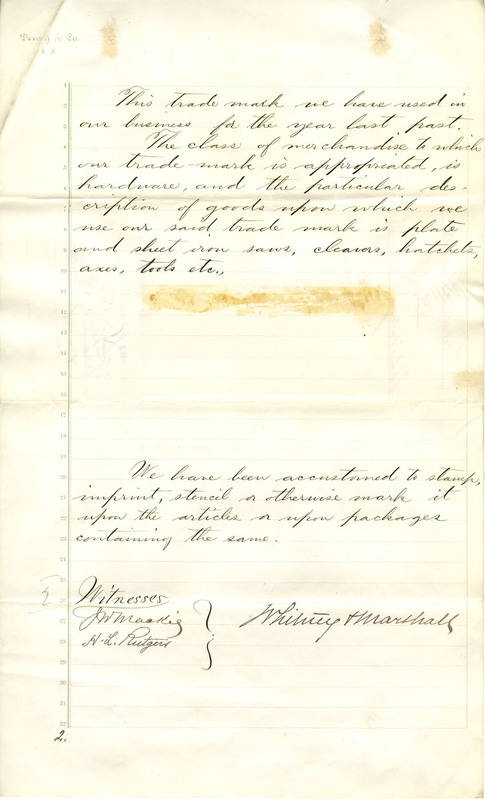 Dewey & Co.
This trade mark we have used in
our business for the year last past.
The class of merchandise to which
our trade-mark is appropriated, is
hardware, and the particular des-
cription of goods upon which we
use our said trade mark is plate
and sheet iron saws, cleavers, hatchets,
axes, tools etc.,
We have been accustomed to stamp,
imprint, stencil or otherwise mark it
upon the articles or upon packages
containing the same.
Witnesses
J W Mackie
H. L. Rutgers
Whitney & Marshall
2.